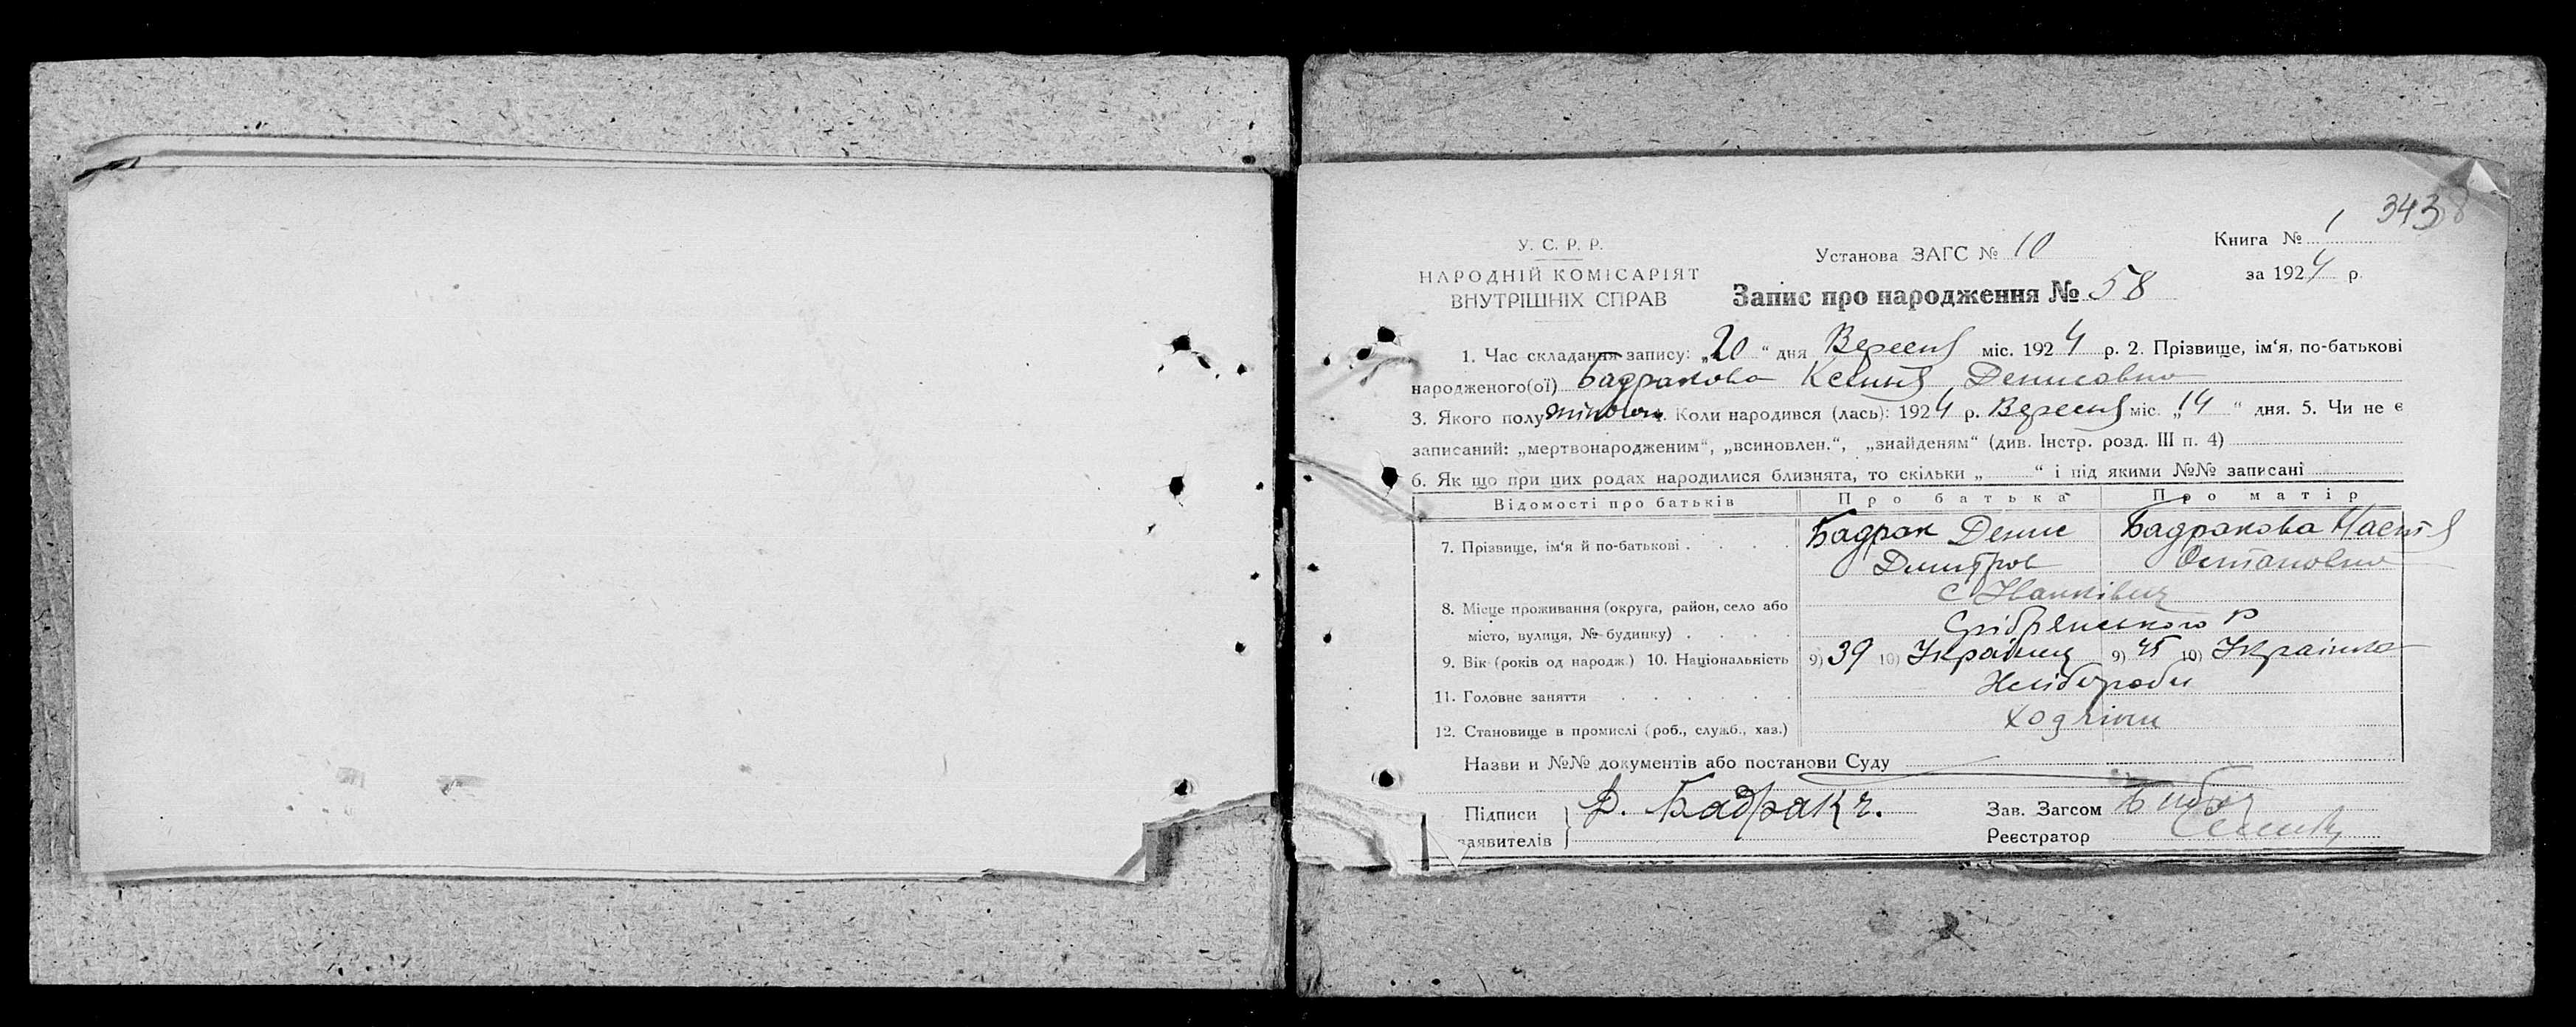 343
У. С. Р. Р.
НАРОДНІЙ КОМІСАРІЯТ
ВНУТРІШНІХ СПРАВ
Установа ЗАГС № 10
Книга № 1
за 1924 р.
Запис про народження № 58
1. Час складання запису: „20“ дня Вересня міс. 1924 р. 2. Прізвище, ім‘я, по-батькові
народженого(ої) Бадракова Ксенія Денисовна
3. Якого полу Коли народився (лась): 1924 р. Вересня міс. „14“ дня. 5. Чи не є
записаний: „мертвонародженим“, „всиновлен.“, „знайденям“ (див. Інстр. розд. III п. 4)
6. Як що при цих родах народилися близнята, то скільки „ “ і під якими №№ записані
Відомості про батьків Про батька Про матір
7. Прізвище, ім‘я й по-батькові . . . . Бадрак Денис Бадракова Настя
Дмитров Остаповна
8. Місце проживання (округа, район, село або с Иванківці
місто, вулиця, № будинку) . . . . Срібрянського Р
9. Вік (років од народж.) 10. Національність 9) 39 10) Українец 9) 45 10) Українка
11. Головне заняття . . . . Хліборобы
12. Становище в промислі (роб., служб., хаз.)
Назви и №№ документів або постанови Суду
Підписи
заявителів
Д. Бадрак
Зав. Загсом
Реєстратор